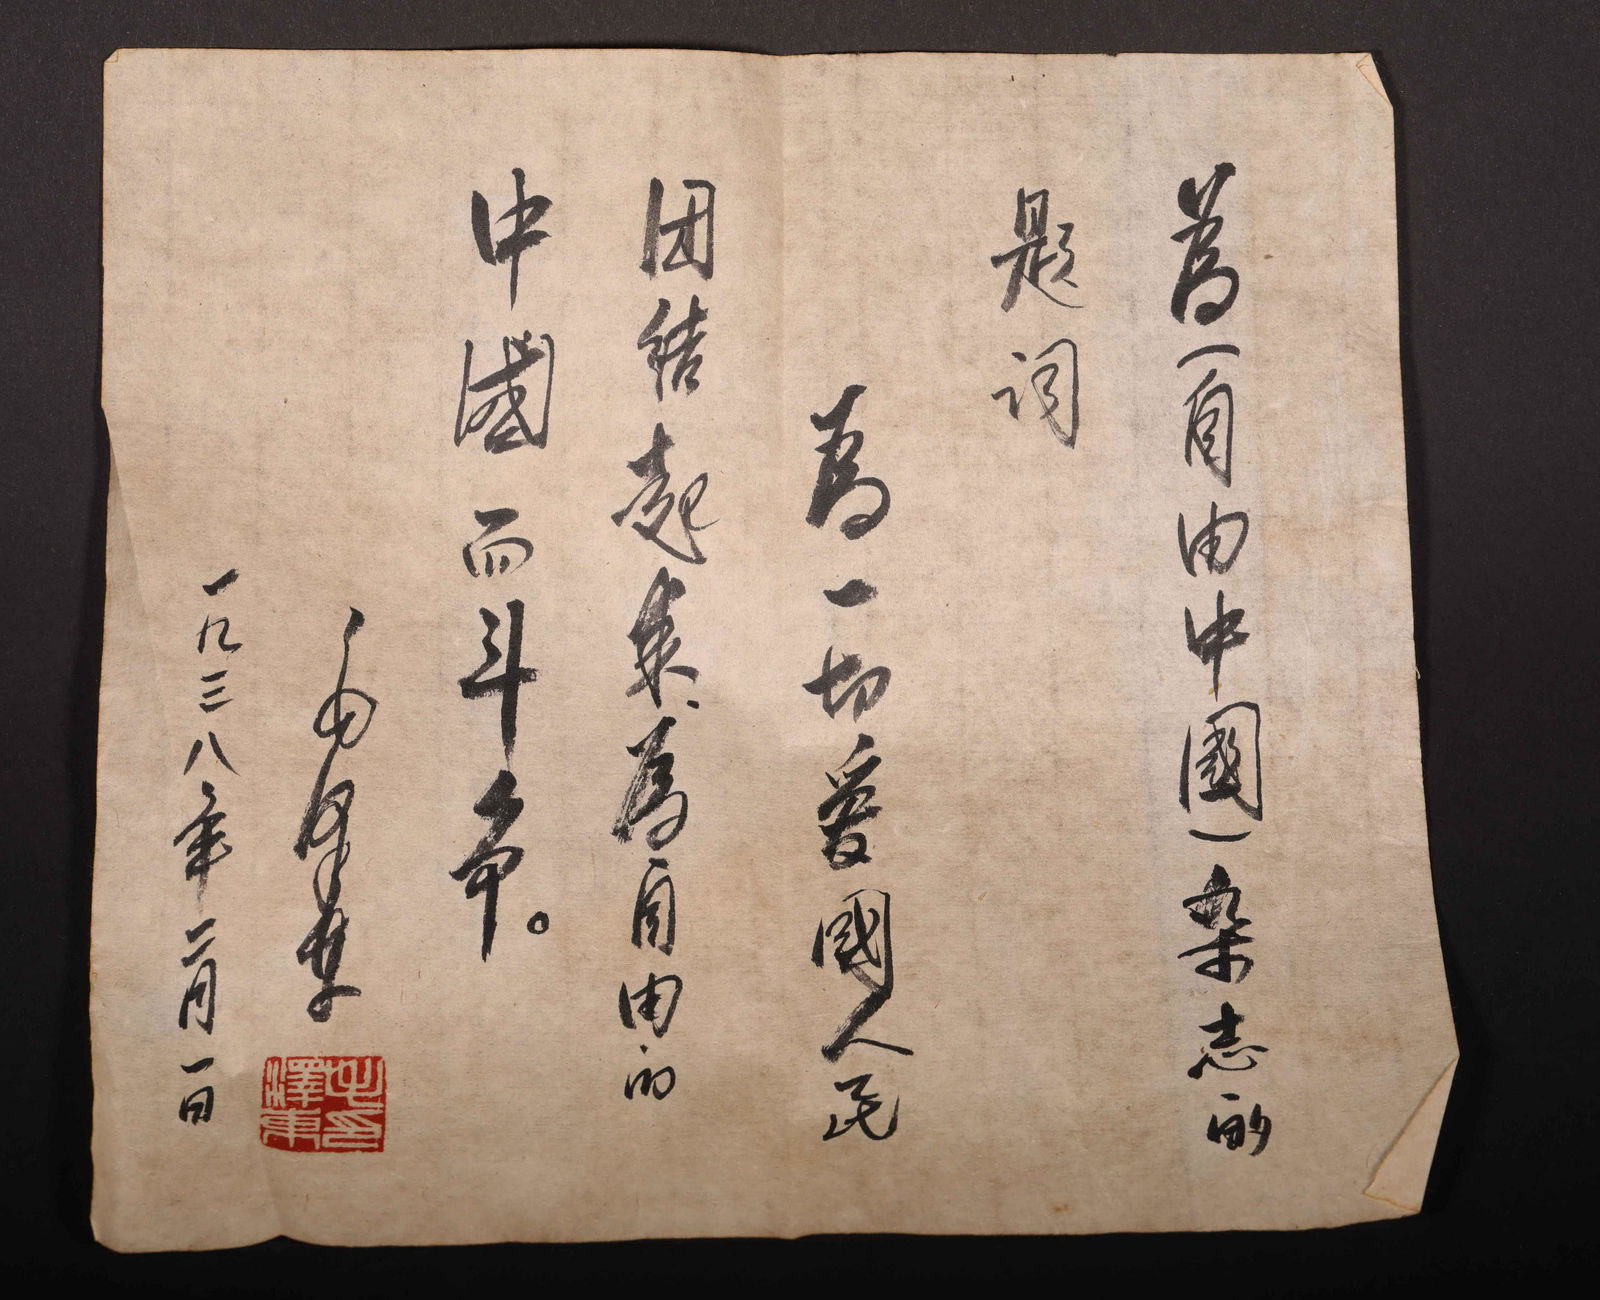 為﹁自由中國﹂杂志的
題詞
為一切愛國人民
团結起来、為自由的
中國而斗争。
毛澤東
一九三八年二月一日
毛澤東印